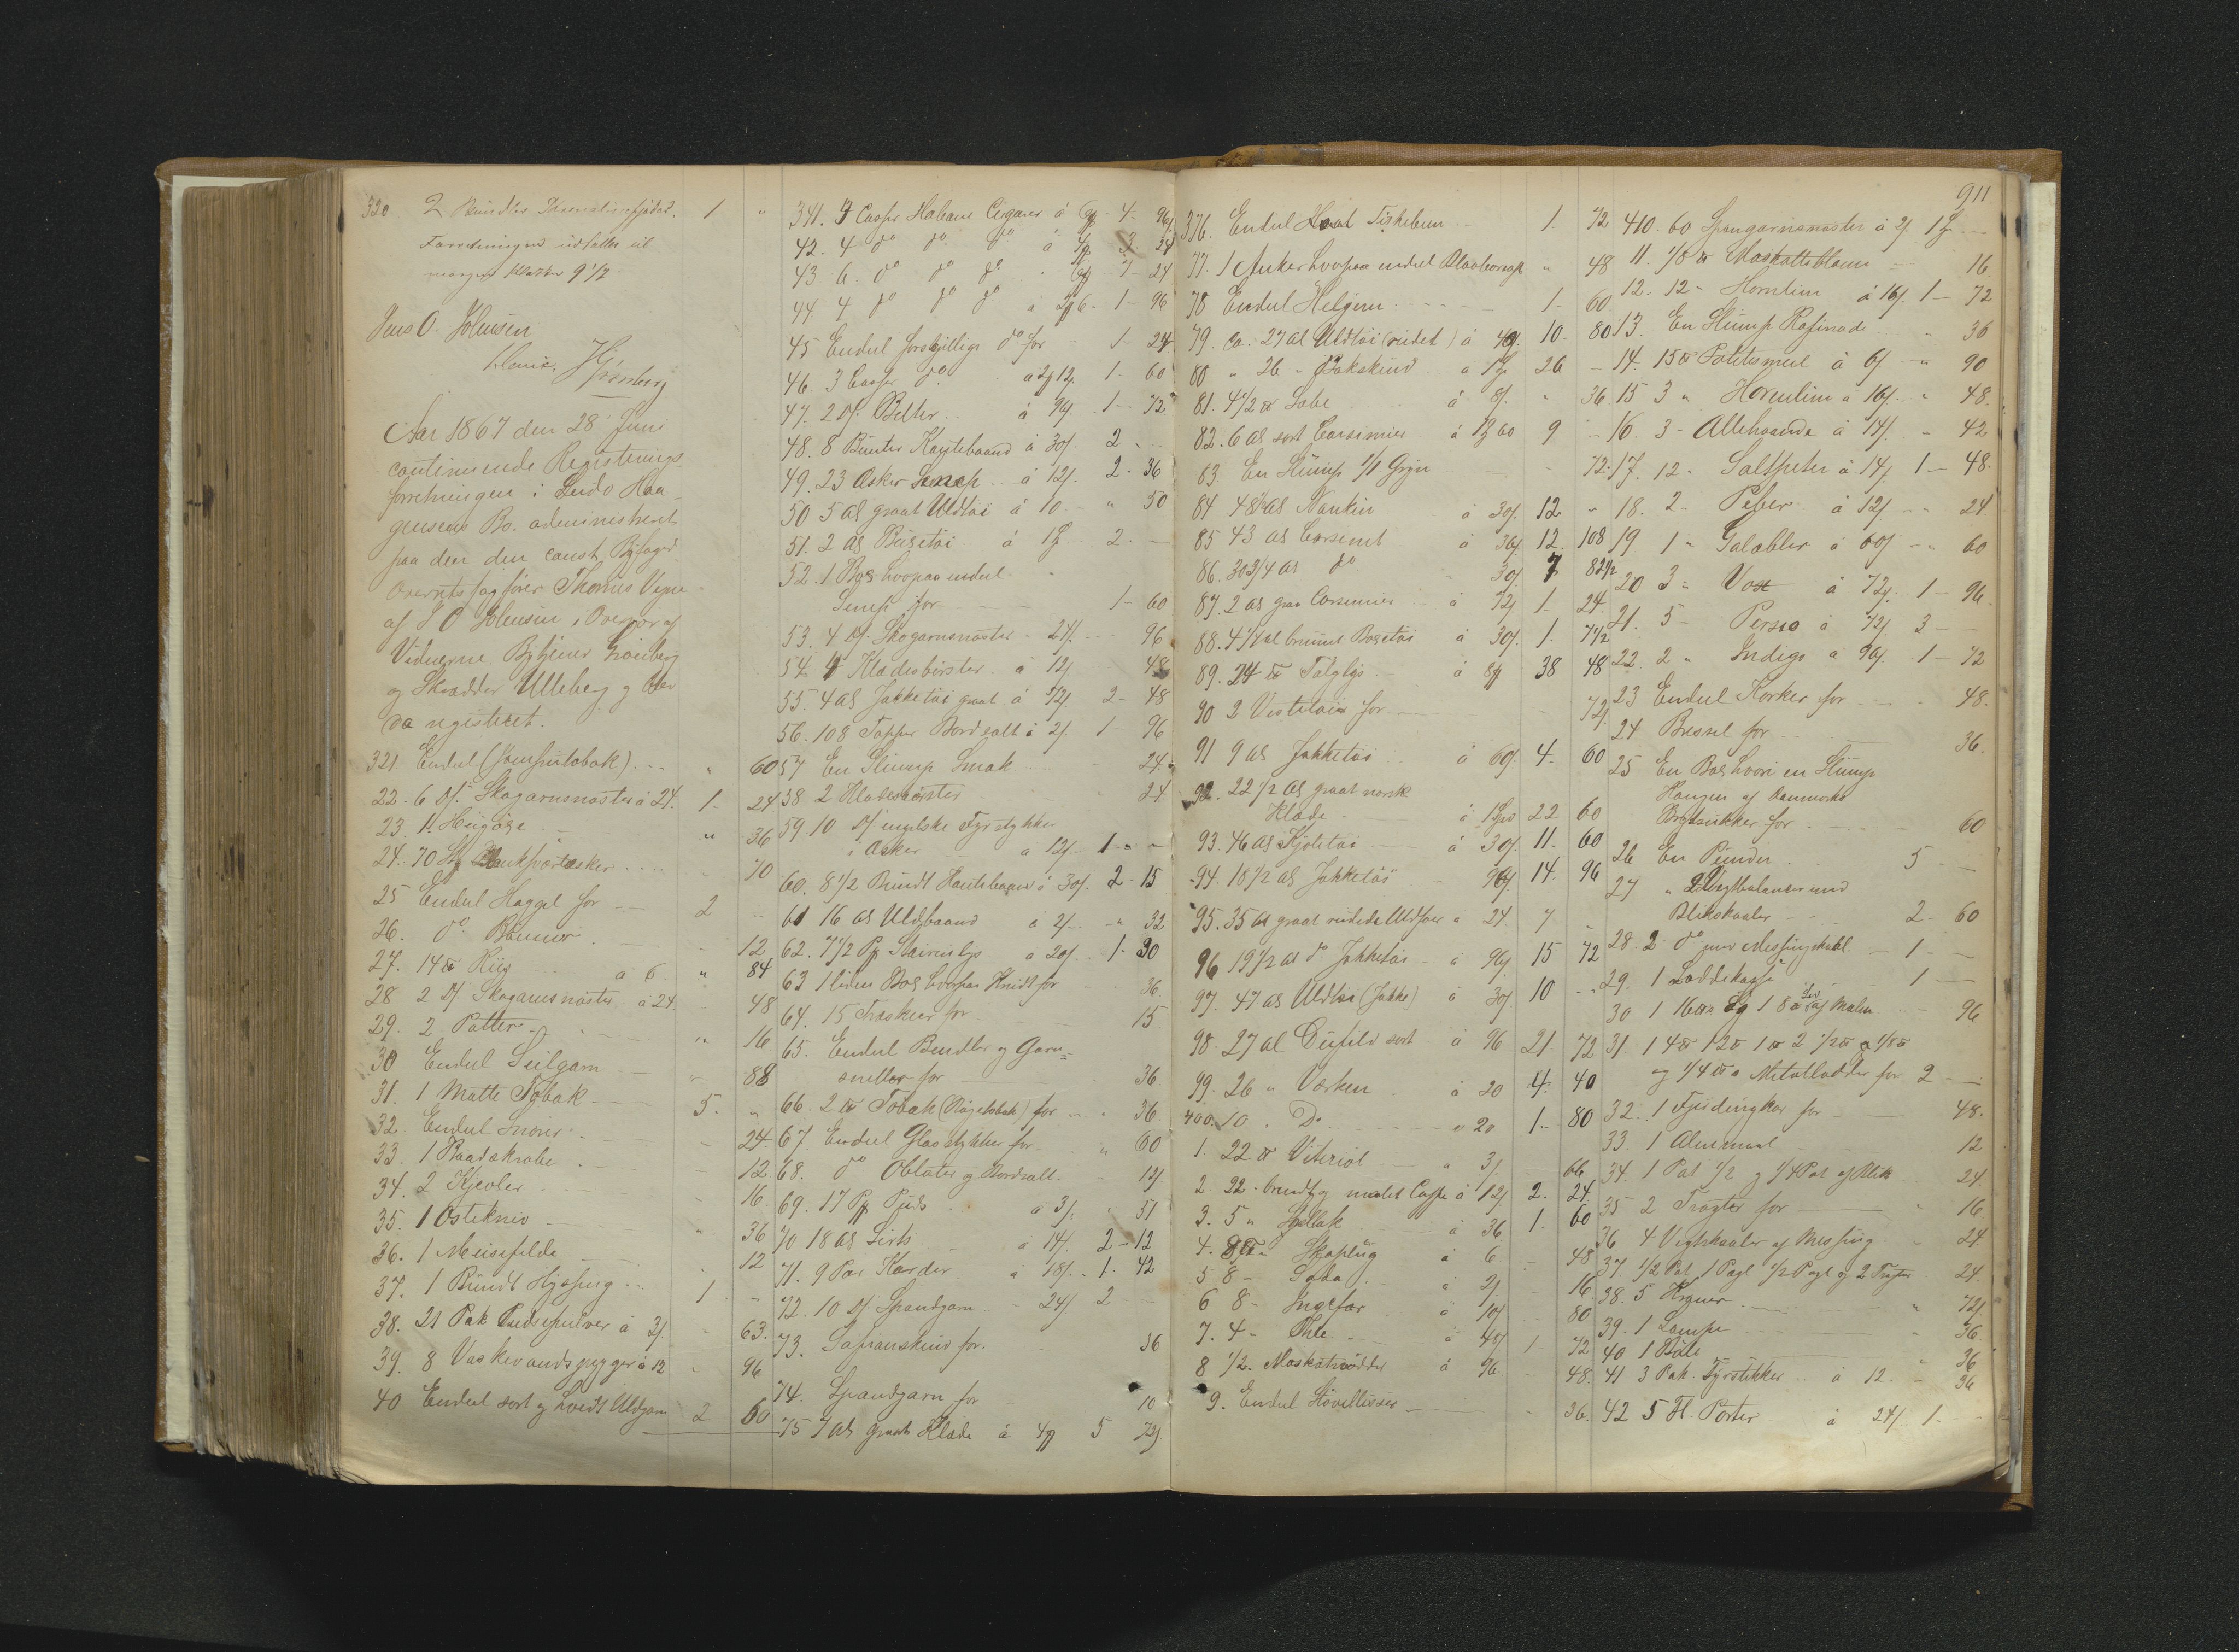 320 2 Bundter 1 "
Forretningen udsattes til
morgen Klokken 9 1/2
Jens O. Johnsen
Aar 1867 den 28 Juni
continuerede Registrerings
forretningen i Ludv Haa-
gensens Bo. administreret
paa den den const. Byfoged
Overretssagfører Thomes Vegne
af J O Johnsen, Overvær af
Vidnerne Bytjener
og Skrædder Ulleberg og blev
da registreret.
321. Endel ( . . . " 60
22. 6 Skogarnsnøster à 24. 1. 24
23. 11 " 36
24. 70 70
25 Endel Haggel for 2
26. do 12
27. 14 ℔ Riis à 6 " 84
28 2 Skogarnsnøster à 24. 48
29. 2 Potter " 16
30 Endel Seilgarn 88
31. 1 Matte Tobak 5. "
32. Endel Snorer 24
33. 1 Baadskrabe 12
34. 2 Kjevler 16
35. 1 Ostekniv 36
36. 1 12
37. 1 Bundt 1 "
38. 21 Pak Pudsepulver à 3 63.
39. 8 à 12 96
40 Endel sort og hvidt Uldgarn 2 60
341. 7 Casser Habana Cigarer à 4. 96
42. 4 do do do à 3.
43 6. do do do 7 24
44 4 do do do à 1 96
45 Endel forskjellige do for 1 24
46 3 Casser do à 1 60
47. 2 Belter à 96 1 72
48. 8 Bunter Kantebaand à 30 2
49. 23 Æsker Senep à 12 2 36
50 5 al graat Uldtøi à 10 " 50
51. 2 al Buxetøi à 1 2.
52. 1 Boes hvorpaa endel
Senep for 1 60
53. 4 Skogarnsnøster 24 96
54 4 Klædesbørster à 12 48
55. 4 al Jakketøi graat à 72 2 48
56. 108 Topper Bordsalt à 2 1 96
57 En Slump Smak 24
58 2 Klædesbørster 24
59. 10 engelske Fyrstykker
i Æsker à 12 1
60. 8 1/2 Bundt Hanteband à 30 2 15
61 16 al Uldbaand à 2 " 32
62. 7 1/2 Stærinlys à 20 1 30
63 1 liden Boes hvorpaa Knidt for 36.
64. 15 Træskeer for 15
65. Endel Bendler og Garn=
sneller for 36.
66. 2 ℔ Tobak (Røgetobak) for 36.
67. Endel Glasstykker for " 60
68. do Oblater og Bordsalt 12
69. 17 à 3 51
70 18 al Sirts à 14 2 12
71. 9 Par Karder à 18 1. 42
72. 10 Spandgarn 24 2
73. Safianskind for 36
74. Spandgarn for 10
75 7 al graat Klæde à 4 5 72
911
376. Endel Fiskebeen 1 72
77. 1 Anker hvorpaa endel " 48
78 Endel Helgrin 1 60
79. Ca. 27 al Uldtøi (rudet) à 48 10. 80
80 " 26 " Bakskind à 1 26
81. 4 1/2 ℔ Sæbe à 8 " 36
82. 6 al sort Carsimier à 1 60 9
83. En Slump 1/1 Gryn 72
84 48 al Nankin à 30 12 "
85 43 al Corsinet à 30 12 108
86. 30 3/4 al do 30 7 82 1/2
87. 2 al graa Corsimier à 72 1 24
88. 4 1/4 al brunt Boxetøi à 30 1. 7 1/2
89. 24 ℔ Talglys à 38 48
90 2 Vestetøier for 72
91 9 al Jakketøi à 60 4 60
92. 22 1/2 al graat norsk
Klæde à 22 60
93. 46 al Kjoletøi à 30 11. 60
94. 18 1/2 al Jakketøi 96 14. 96
95. 35 al graat rudede à 24 7
96 19 1/2 al do Jakketøi à 96 15 72
97. 47 al Uldtøi (Jakke) à 30 10
98. 27 al Dufeld sort à 96 21 72
99. 26 " Værken à 20 4. 40
400. 10 " Do " 20 1. 80
1. 22 ℔ Viteriol " 3 66
2. 22 brændt og malet Caffe à 12 2. 24.
3. 5 " Skellak à 36 1. 60
4. 8 ℔ Skoplug à 6 48
5 8 Soda à 2 16
6 8 Ingefær à 10 80
7. 4 Thee à 48 1 72
8 1/2 Moskatnødder à 96 48
9. Endel 36.
410. 60 Spongarnsnøster à 2 1
11. 1/8 ℔ Moskatteblom 16
12. 12 Hornlim à 16 1 72
13. En Slump Rafinade 36
14. 15 ℔ Potetesmeel à 6 " 90
15 3 " Hornlim à 16 " 48.
16. 3 Allehaande à 14 42
17. 12 Saltpeter à 14 1 48.
18. 2 Peber à 12 24
19 1 " Galæbler à 60 60
20 3 " Vox à 72 1 96.
21. 5 Persio à 72 3
22. 2 " Indigo à 96 1 72
23 Endel Korker for 48.
24 Bressel for 36.
25 En Boes hvori en Slump
for 60
26 En Pünder 5
27 " 2 Vegtbalancer med
Blikskaaler 2 60
28. 2 do med Messingskaal 1
29. 1 1
30 1 16 ℔ og 1 8 ℔ Lod af Malm 96
31 1 4 ℔ 1 2 ℔ 1 ℔ 2 1/2 ℔ 1/8 ℔
og 1/4 ℔ Metallodder for 2
32. 1 Fjerdingkar for 48.
33. 1 Alenmaal 12
34. 1 Pot 1/2 og 1/4 Pot af Blik 24
35 2 Tragter for " 16
36 4 Vegtskaaler af Messing 24
37. 1/2 Pot 1 Pægl 1/2 Pægl og 2 Tragter 24
38. 5 Kraner " 72
39. 1 Lampe 36
40 1 36
41 3 Pak Fyrstikker à 12 " 36
42 5 Fl. Porter à 24 1.